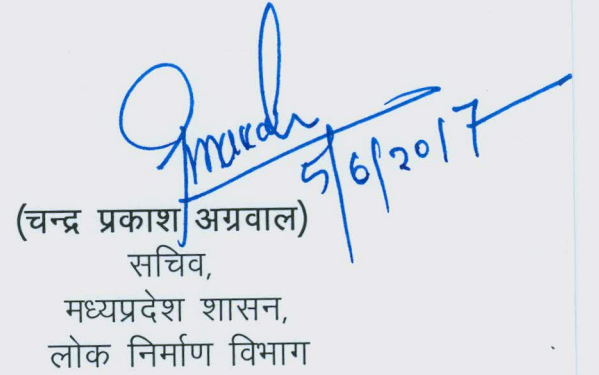 5/6/2017
(चन्द्र प्रकाश अग्रवाल)
सचिव,
मध्यप्रदेश शासन,
लोक निर्माण विभाग